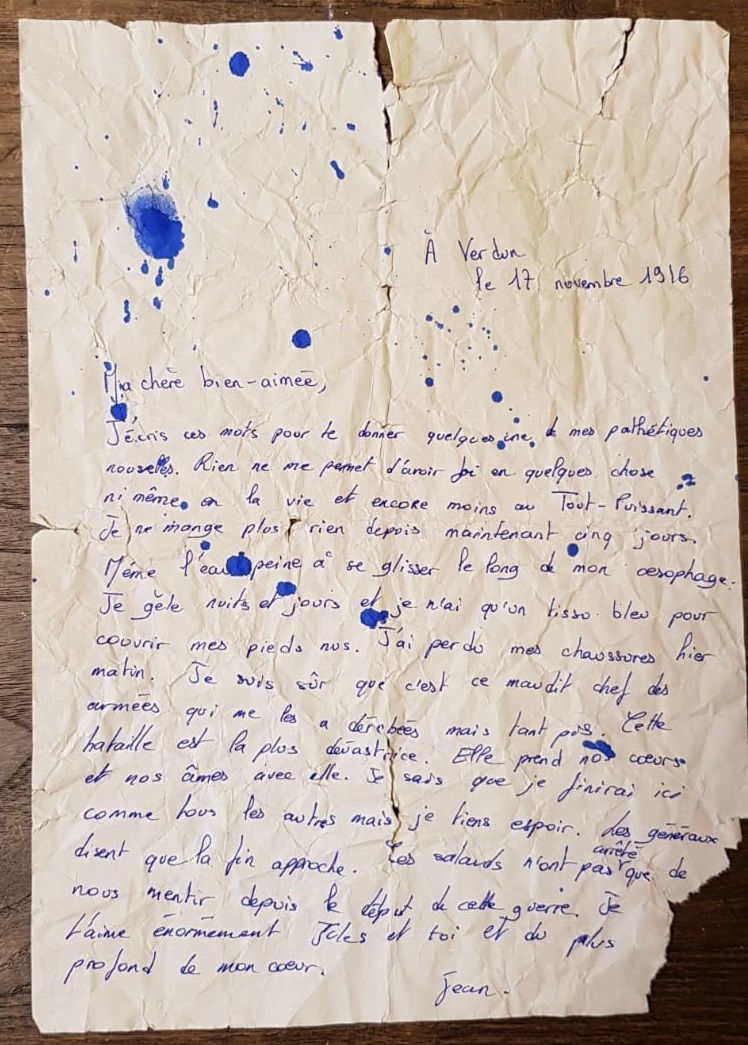 À Verdun
le 17 novembre 1916
Ma chère bien-aimée,
J'écris ces mots pour te donner quelques une de mes pathétiques
nouvelles. Rien ne me permet d'avoir foi en quelques chose
ni même en la vie et encore moins au Tout-Puissant.
Je ne mange plus rien depuis maintenant cinq jours.
Même l'eau peine à se glisser le long de mon œsophage.
Je gèle nuits et jours et je n'ai qu'un tissu bleu pour
couvrir mes pieds nus. J'ai perdu mes chaussures hier
matin. Je suis sûr que c'est ce maudit chef des
armées qui me les a dérobées mais tant pis. Cette
bataille est la plus dévastrice. Elle prend nos cœurs
et nos âmes avec elle. Je sais que je finirai ici
comme tous les autres mais je tiens espoir. Les généraux
disent que la fin approche. Ces salauds n'ont pas arrêté que de
nous mentir depuis le début de cette guerre. Je
t'aime énormement Jules et toi et du plus
profond de mon cœur.
Jean.